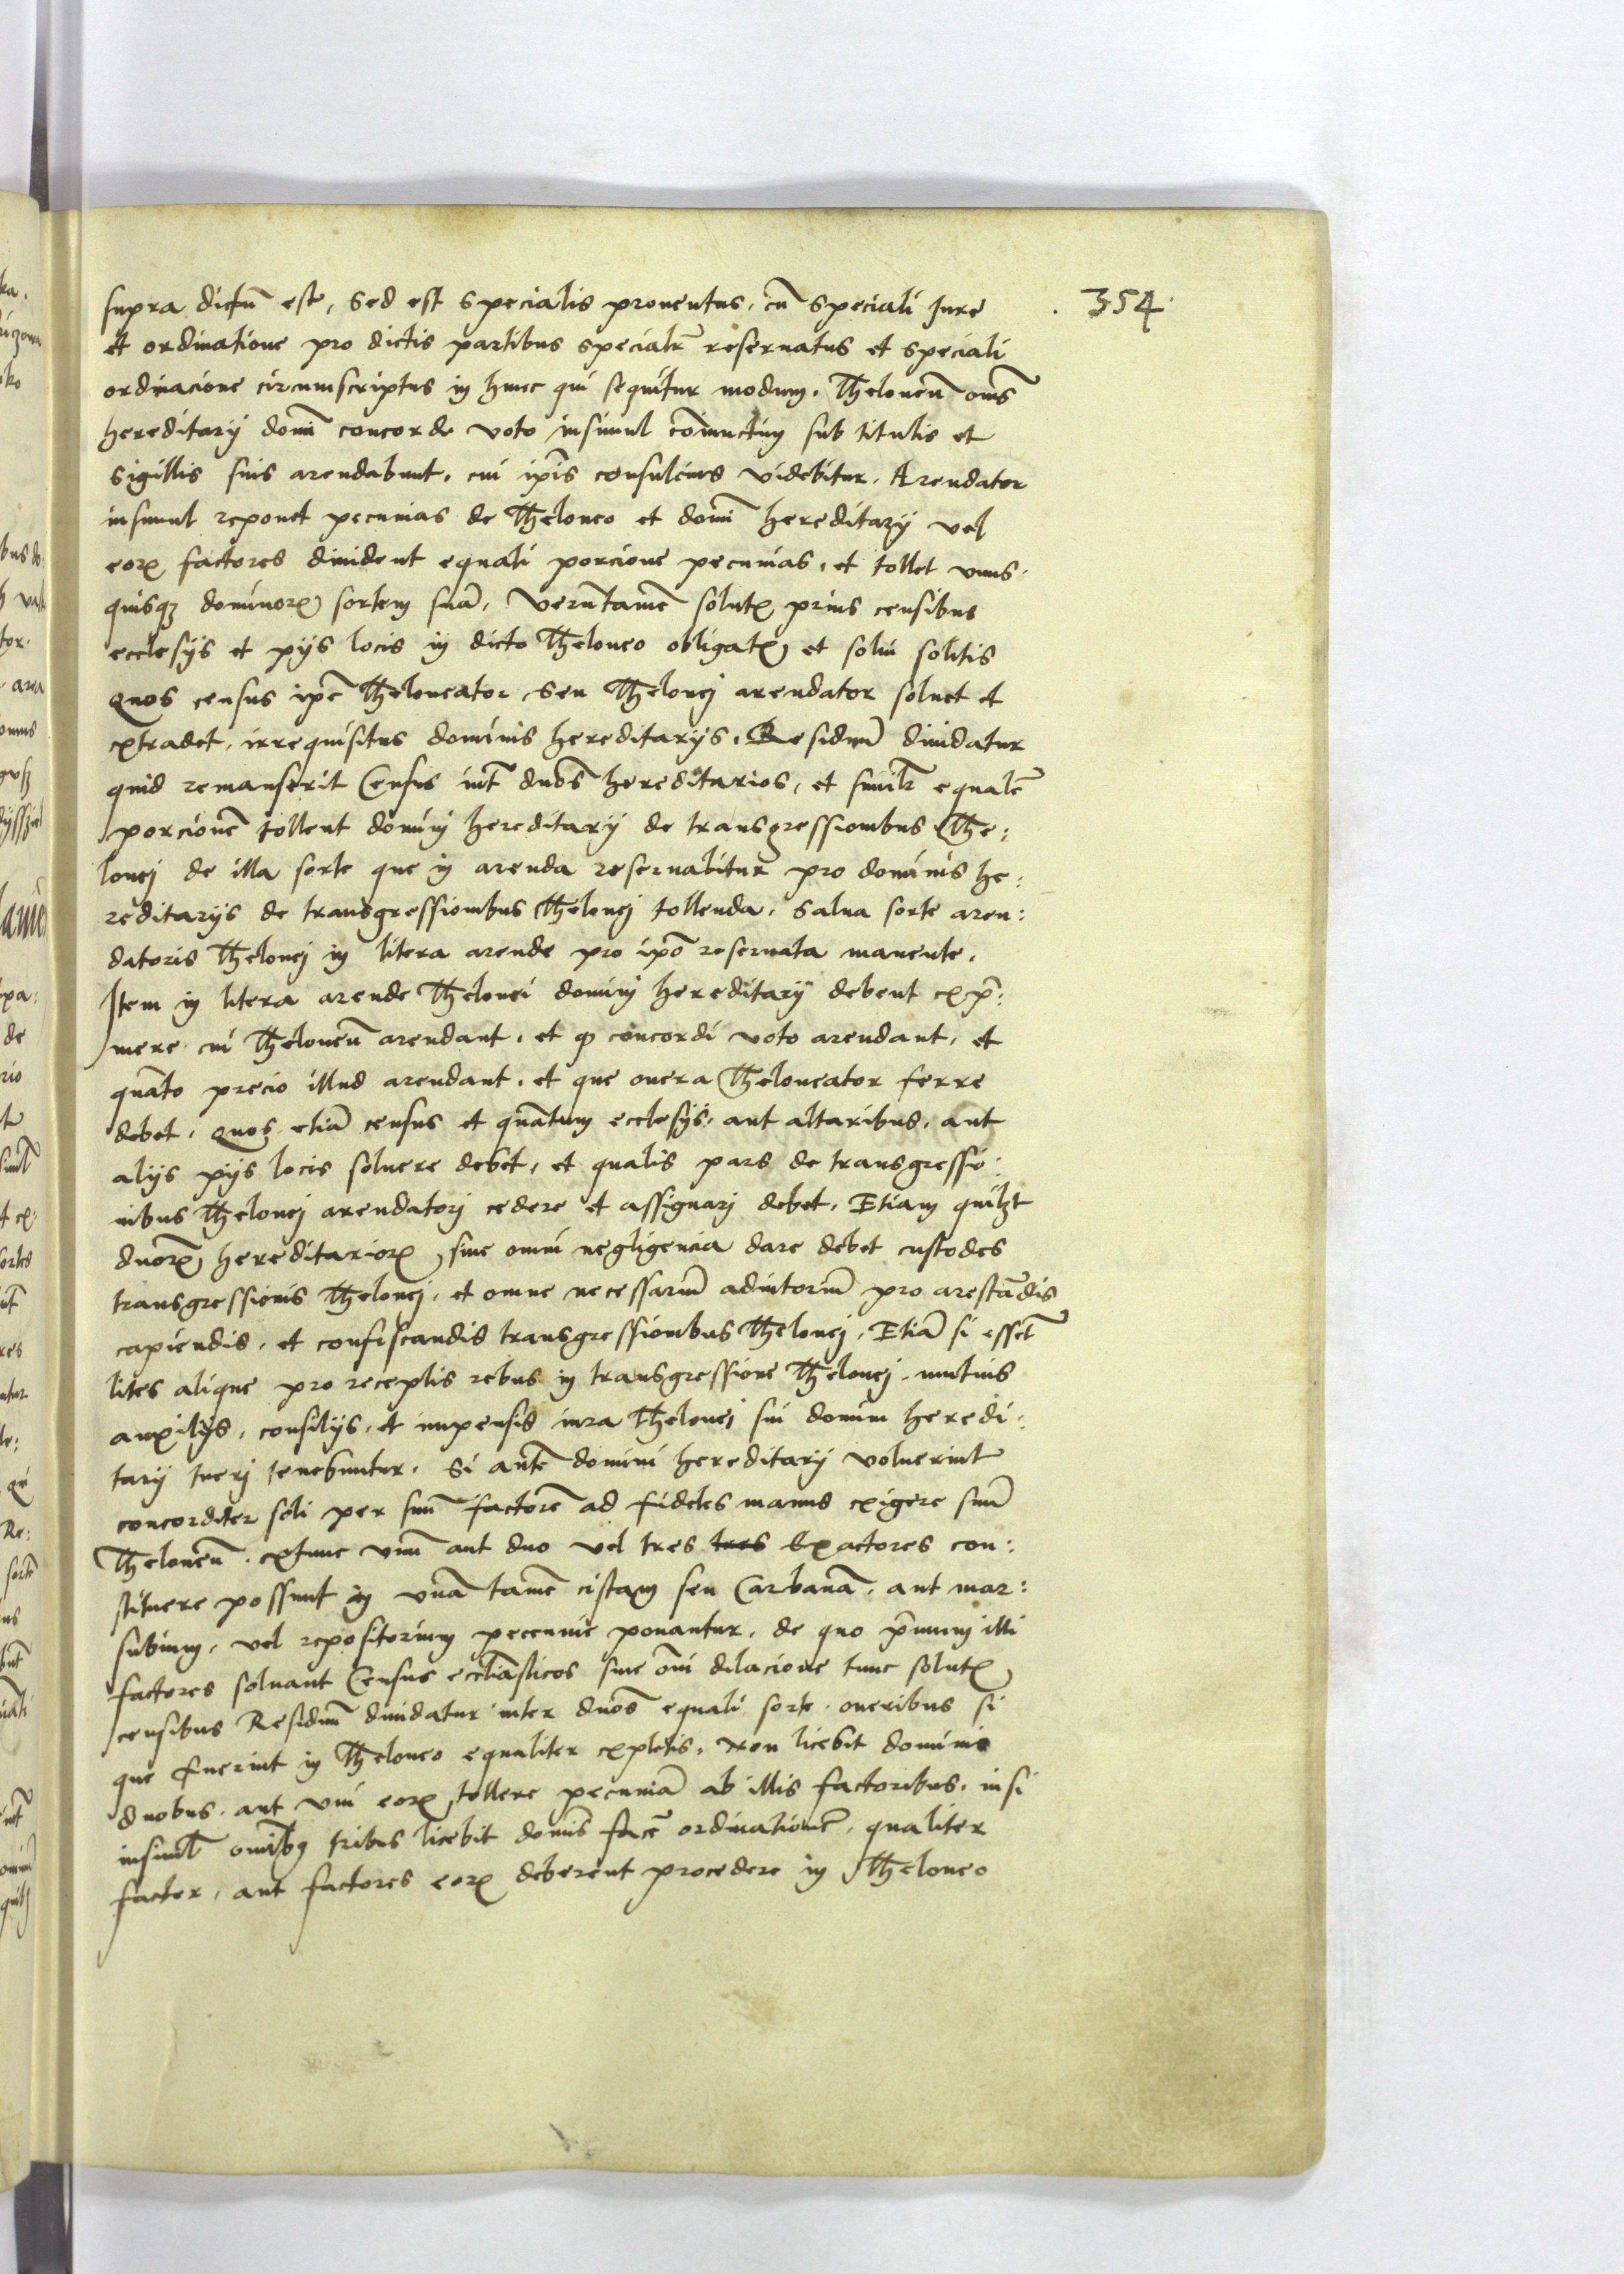 354
supra dictū est, sed est specialis prouentus, cū speciali Jure
et ordinatione pro dictis partibus specialr̄ reseruatus et speciali
ordinacione circumscriptus in hunc qui sequitur modum. Theloneū om̄s
hereditarij domī concorde voto insimul coniunctim sub titulis et
sigillis suis arendabunt, cui ip̄is consulcius videbitur. Arendator
insimul reponet pecunias de Theloneo et domī hereditarij vel
eorꝝ factores diuident equali porcione pecunias, et tollet vnus-
quisqꝫ dominorꝝ sortem suā, Verūtamē solutꝭ prius censibus
ecclesijs et pijs locis in dicto Theloneo obligatꝭ et solui solitis
Quos census ip̄e Theloneator seu Thelonej arendator soluet et
extradet, irrequisitus dominis hereditarijs. Residuū diuidatur
quid remanserit Census int̄ dnōs hereditarios, et similr̄ equalē
porcionē tollent dominj hereditarij de transgressionibus The:
lonej de illa sorte que in arenda reseruabitur pro dominis he:
reditarijs de transgressionibus Thelonej tollenda, salua sorte aren:
datoris Thelonej in litera arende pro ip̄o reseruata manente.
Item in litera arende Thelonei dominj hereditarij debent exp̄:
mere cui Theloneū arendant, et ꝙ concordi voto arendant, et
quāto precio illud arendant, et que onera Theloneator ferre
debet, quos etiā census et quātum ecclesijs, aut altaribus, aut
alijs pijs locis soluere debet, et qualis pars de transgressio:
nibus Thelonej arendatorj cedere et assignarj debet, Etiam quilꝫt
dnorꝝ hereditariorꝝ sine omni negligencia dare debet custodes
transgressionis Thelonej, et omne necessariū adiutoriū pro arestādis
capiendis, et confiscandis transgressionibus Thelonej, Etiā si essēt
lites alique pro receptis rebus in transgressione Thelonej, mutuis
auxilijs, consilijs, et impensis iura Thelonej sui domini heredi:
tarij tuerj tenebuntur. Si autē domini hereditarij voluerint
concorditer soli per suū factorē ad fideles manus exigere suū
Theloneū, extunc vnū aut duo vel tres tres Exactores con:
stituere possunt in vnā tamē cistam seu Carbanā, aut mar:
subium, vel repositorium peccunie ponantur, de quo p̄mum illi
factores soluant Census eccl̄iasticos sine om̄i dilacione tunc solutꝭ
censibus Residuū diuidatur inter dnōs equali sorte, oneribus si
que fuerint in Theloneo equaliter expletis. Non licebit dominis
duobus, aut vni eorꝝ tollere pecuniā ab illis factoribus, insi
insiml̄ omībꝫ tribus licebit domīs facē ordinationē, qualiter
factor, aut factores eorꝝ deberent procedere in Theloneo